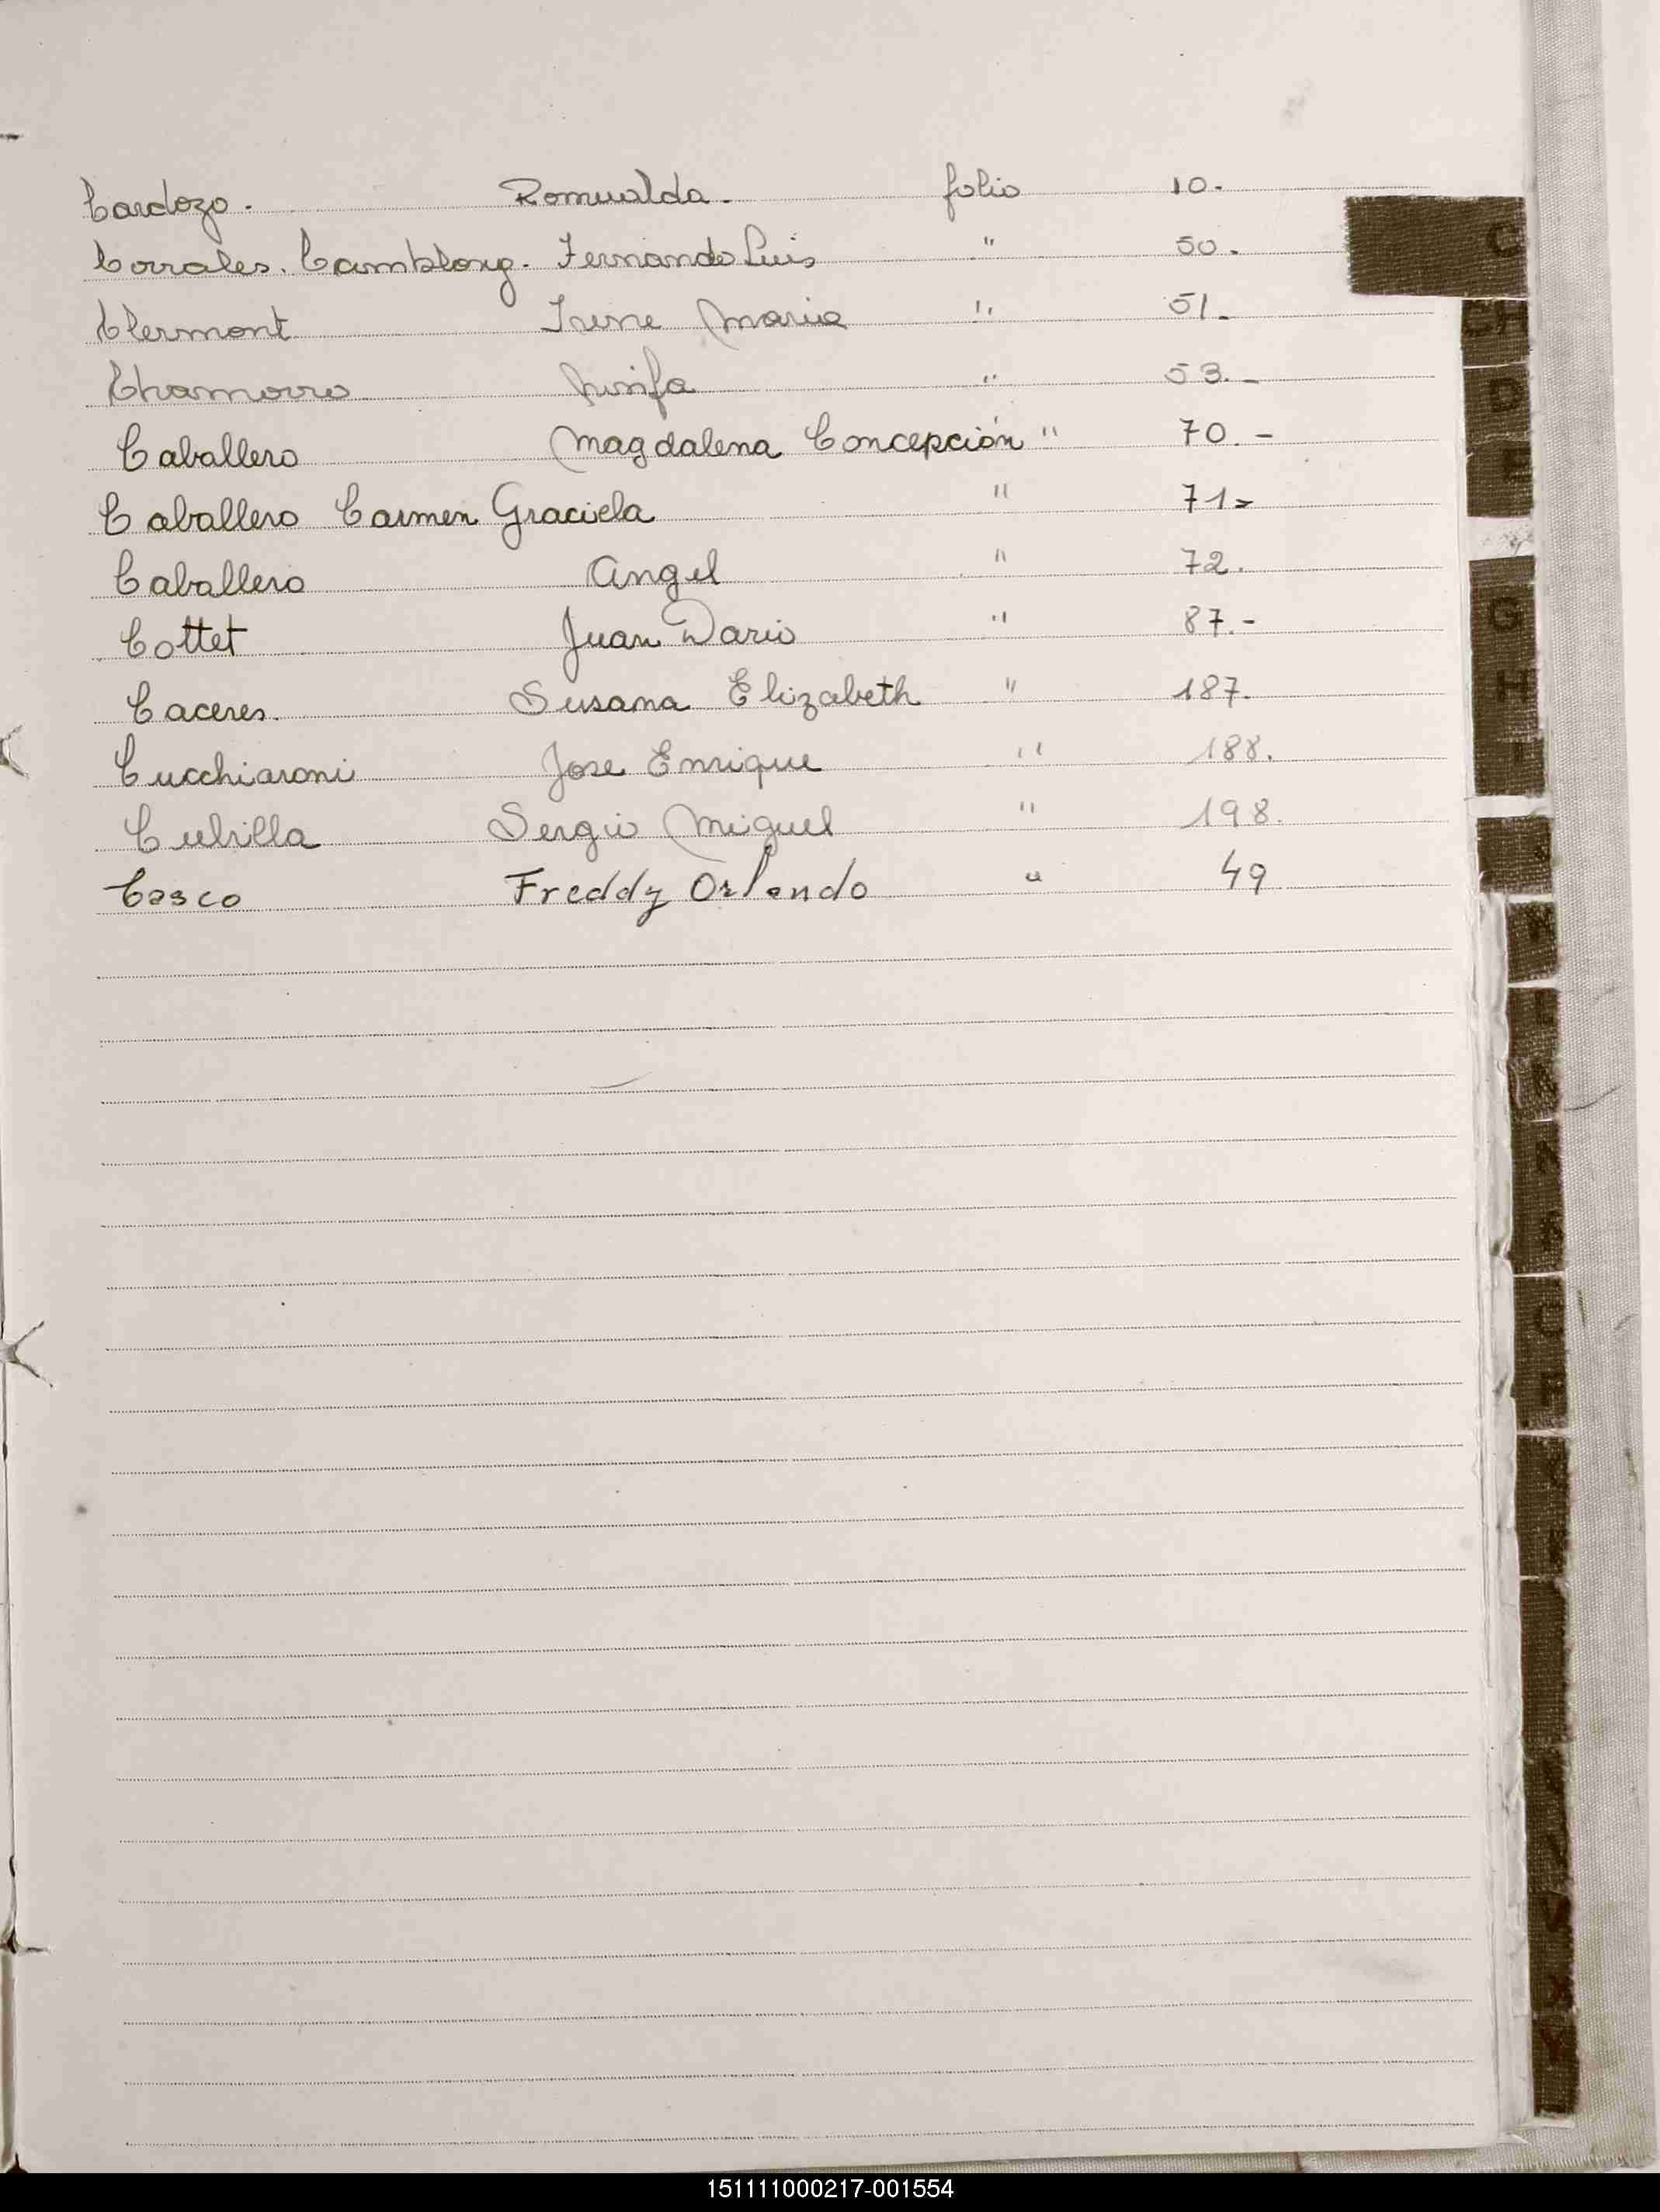 Cardozo. Romualda. folio 10.
Corrales. Camblong. Fernando Luis " 50.
Clermont Irene Maria " 51.
Chamorro Ninfa " 53.-
Caballero Magdalena Concepción " 70.-
Caballero Carmen Graciela " 71=
Caballero Angel " 72.
Cottet Juan Dario " 87.-
Caceres. Susana Elizabeth " 187.
Cucchiaroni Jose Enrique " 188.
Cubilla Sergio Miguel " 198.
Casco Freddy Orlando " 49
C
CH
D
E
G
H
I
151111000217-001554